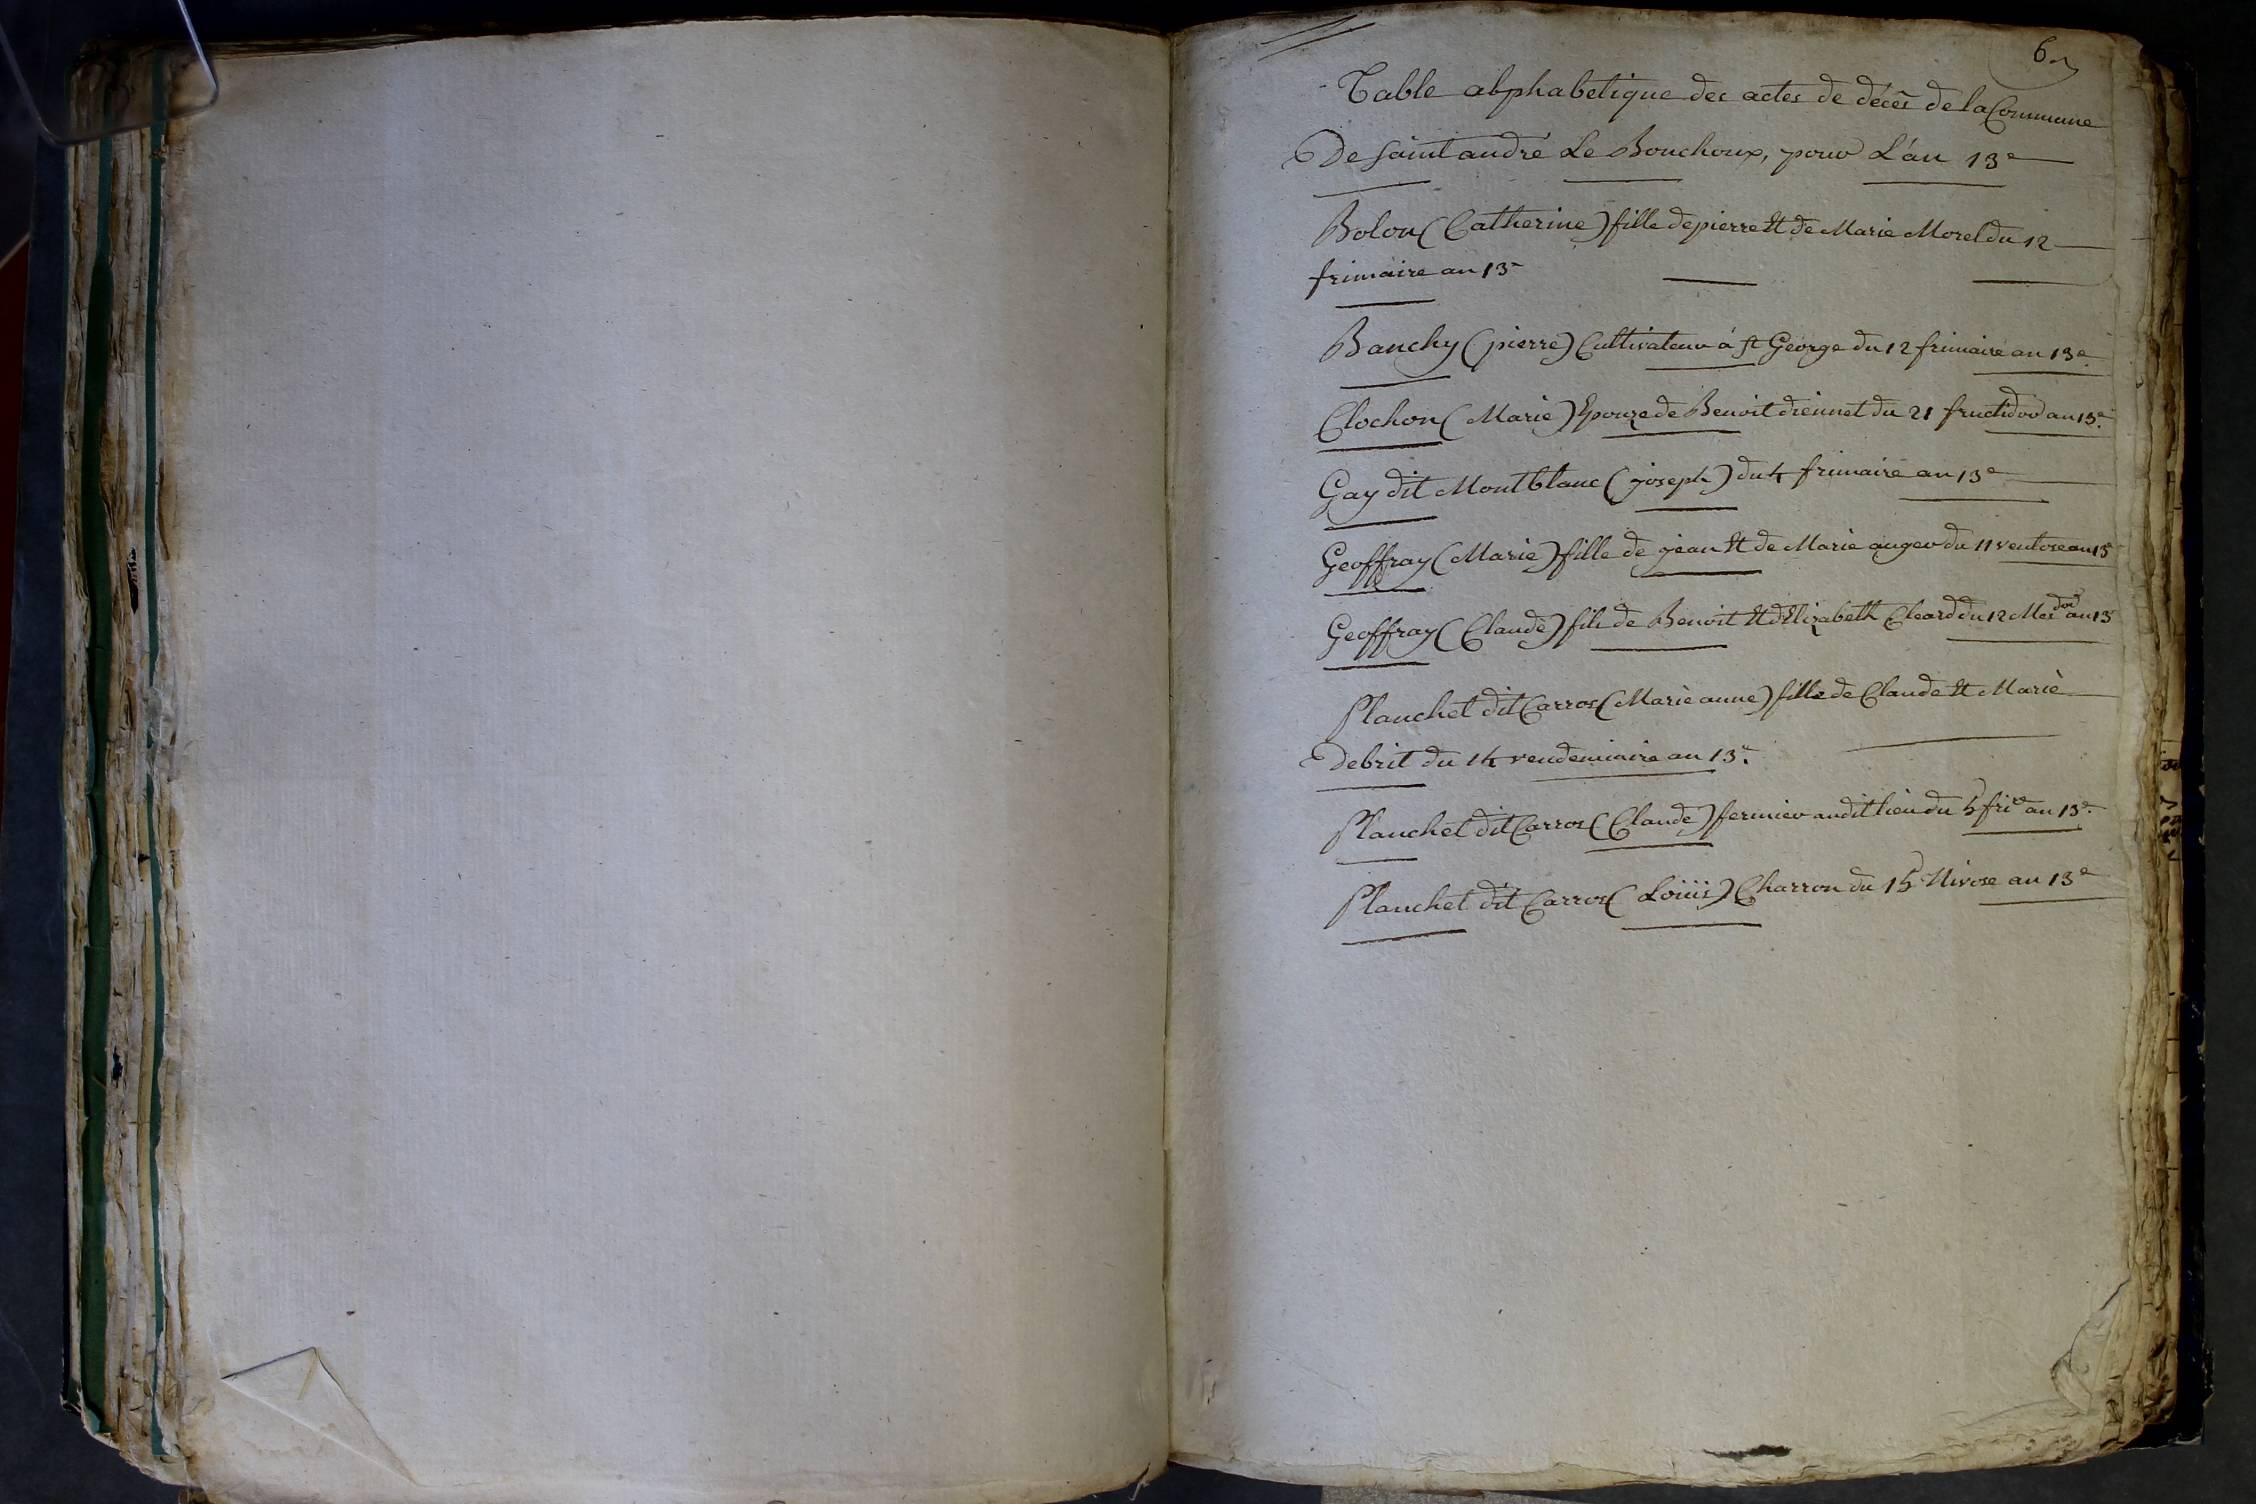 6
Table alphabetique des actes de décès de la Commune
De Saint andré Le Bouchoux, pour L'an 13e
Bolon (Catherine) fille de pierre Et de Marie Morel du 12
frimaire an 13e
Banchy (pierre) Cultivateur à St George du 12 frimaire an 13e
Clochon (Marie) Epouze de Benoit diennet du 21 fructidor an 13e
Gay dit Montblanc (joseph) du 4 frimaire an 13e
Geoffray (Marie) fille de jean Et de Marie auger du 11 ventose an 13e
Geoffray (Claude) fils de Benoit Et d'Elizabeth Cleard du 12 Mesdor an 13
Planchet dit Carros (Marie anne) fille de Claude Et Marie
Debrit du 14 vendemiaire an 13e
Planchet dit Carros (Claude) fermier audit lieu du 5 frire an 13e
Planchet dit Carros (Loüis) Charron du 15 Nivose an 13e